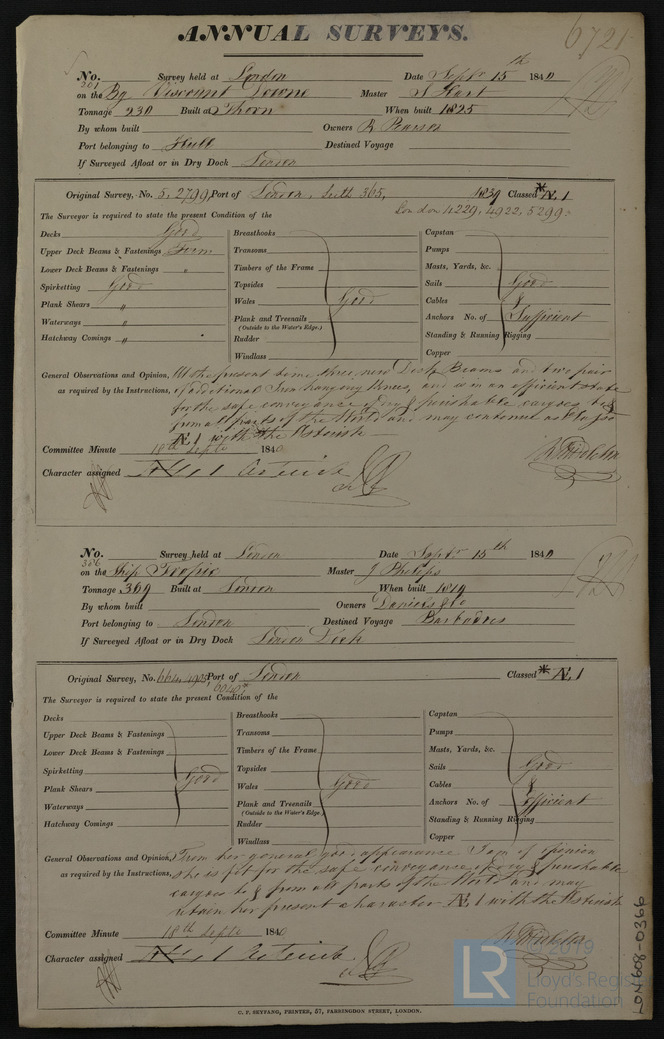 ANNUAL SURVEYS.
6721
No. Survey held at London Date Septr 15th 1840
201
on the Bg Viscount Downe Master S Hart
Tonnage 230 Built at Thorn When built 1825
By whom built Owners R Pearson
Port belonging to Hull Destined Voyage
If Surveyed Afloat or in Dry Doch London
Original Survey, No. 5, 2799, Port of London, Leith 365, 1839 Classed *Æ 1
London 4229, 4922, 5299
The Surveyor is required to state the present Condition of the
Decks Good Breasthooks Capstan
Upper Deck Beams & Fastenings Firm Transoms Pumps
Lower Deck Beams & Fastenings " Timbers of the Frame Masts, Yards, &c.
Spirketting Good Topsides Sails Good
Plank Shears " Wales Good Cables &
Waterways " Plank and Treenails Anchors No. of Sufficient
(Outside to the Water's Edge.)
Hatchway Comings " Rudder Standing & Running Rigging
Windlass Copper
General Observations and Opinion, At the present some three new Deck Beams and two pair
as required by the Instructions, of additional Iron hanging Knees, and is in an efficient state
for the safe conveyance of dry & perishable cargoes to &
from all parts of the World and may continue as
Æ 1 with the Asterisk
Committee Minute 18th Septr 1840
Character assigned Æ 1 Asterisk
No. Survey held at London Date Septr 15th 1840
386
on the Ship Tropic Master J Phelips
Tonnage 369 Built at London When built 1819
By whom built Owners Daniels & Co
Port belonging to London Destined Voyage Barbadoes
If Surveyed Afloat or in Dry Doch London Dock
Original Survey, No. Port of London Classed * Æ 1
The Surveyor is required to state the present Condition of the
Decks Breasthooks Capstan
Upper Deck Beams & Fastenings Transoms Pumps
Lower Deck Beams & Fastenings Timbers of the Frame Masts, Yards, &c.
Spirketting Good Topsides Sails Good
Plank Shears Wales Good Cables &
Waterways Plank and Treenails Anchors No. of Sufficient
(Outside to the Water's Edge.)
Hatchway Comings Rudder Standing & Running Rigging
Windlass Copper
General Observations and Opinion, From her general good appearance I am of opinion
as required by the Instructions, she is fit for the safe conveyance of dry & perishable
cargoes to & from all parts of the World and may
retain her present character Æ 1 with the Asterisk
Committee Minute 18th Septr 1840
Character assigned Æ 1 Asterisk
LON608-0366
© 2019
Lloyd's Register
Foundation
LR
C. F. SEYFANG, PRINTER, 57, FARRINGDON STREET, LONDON.